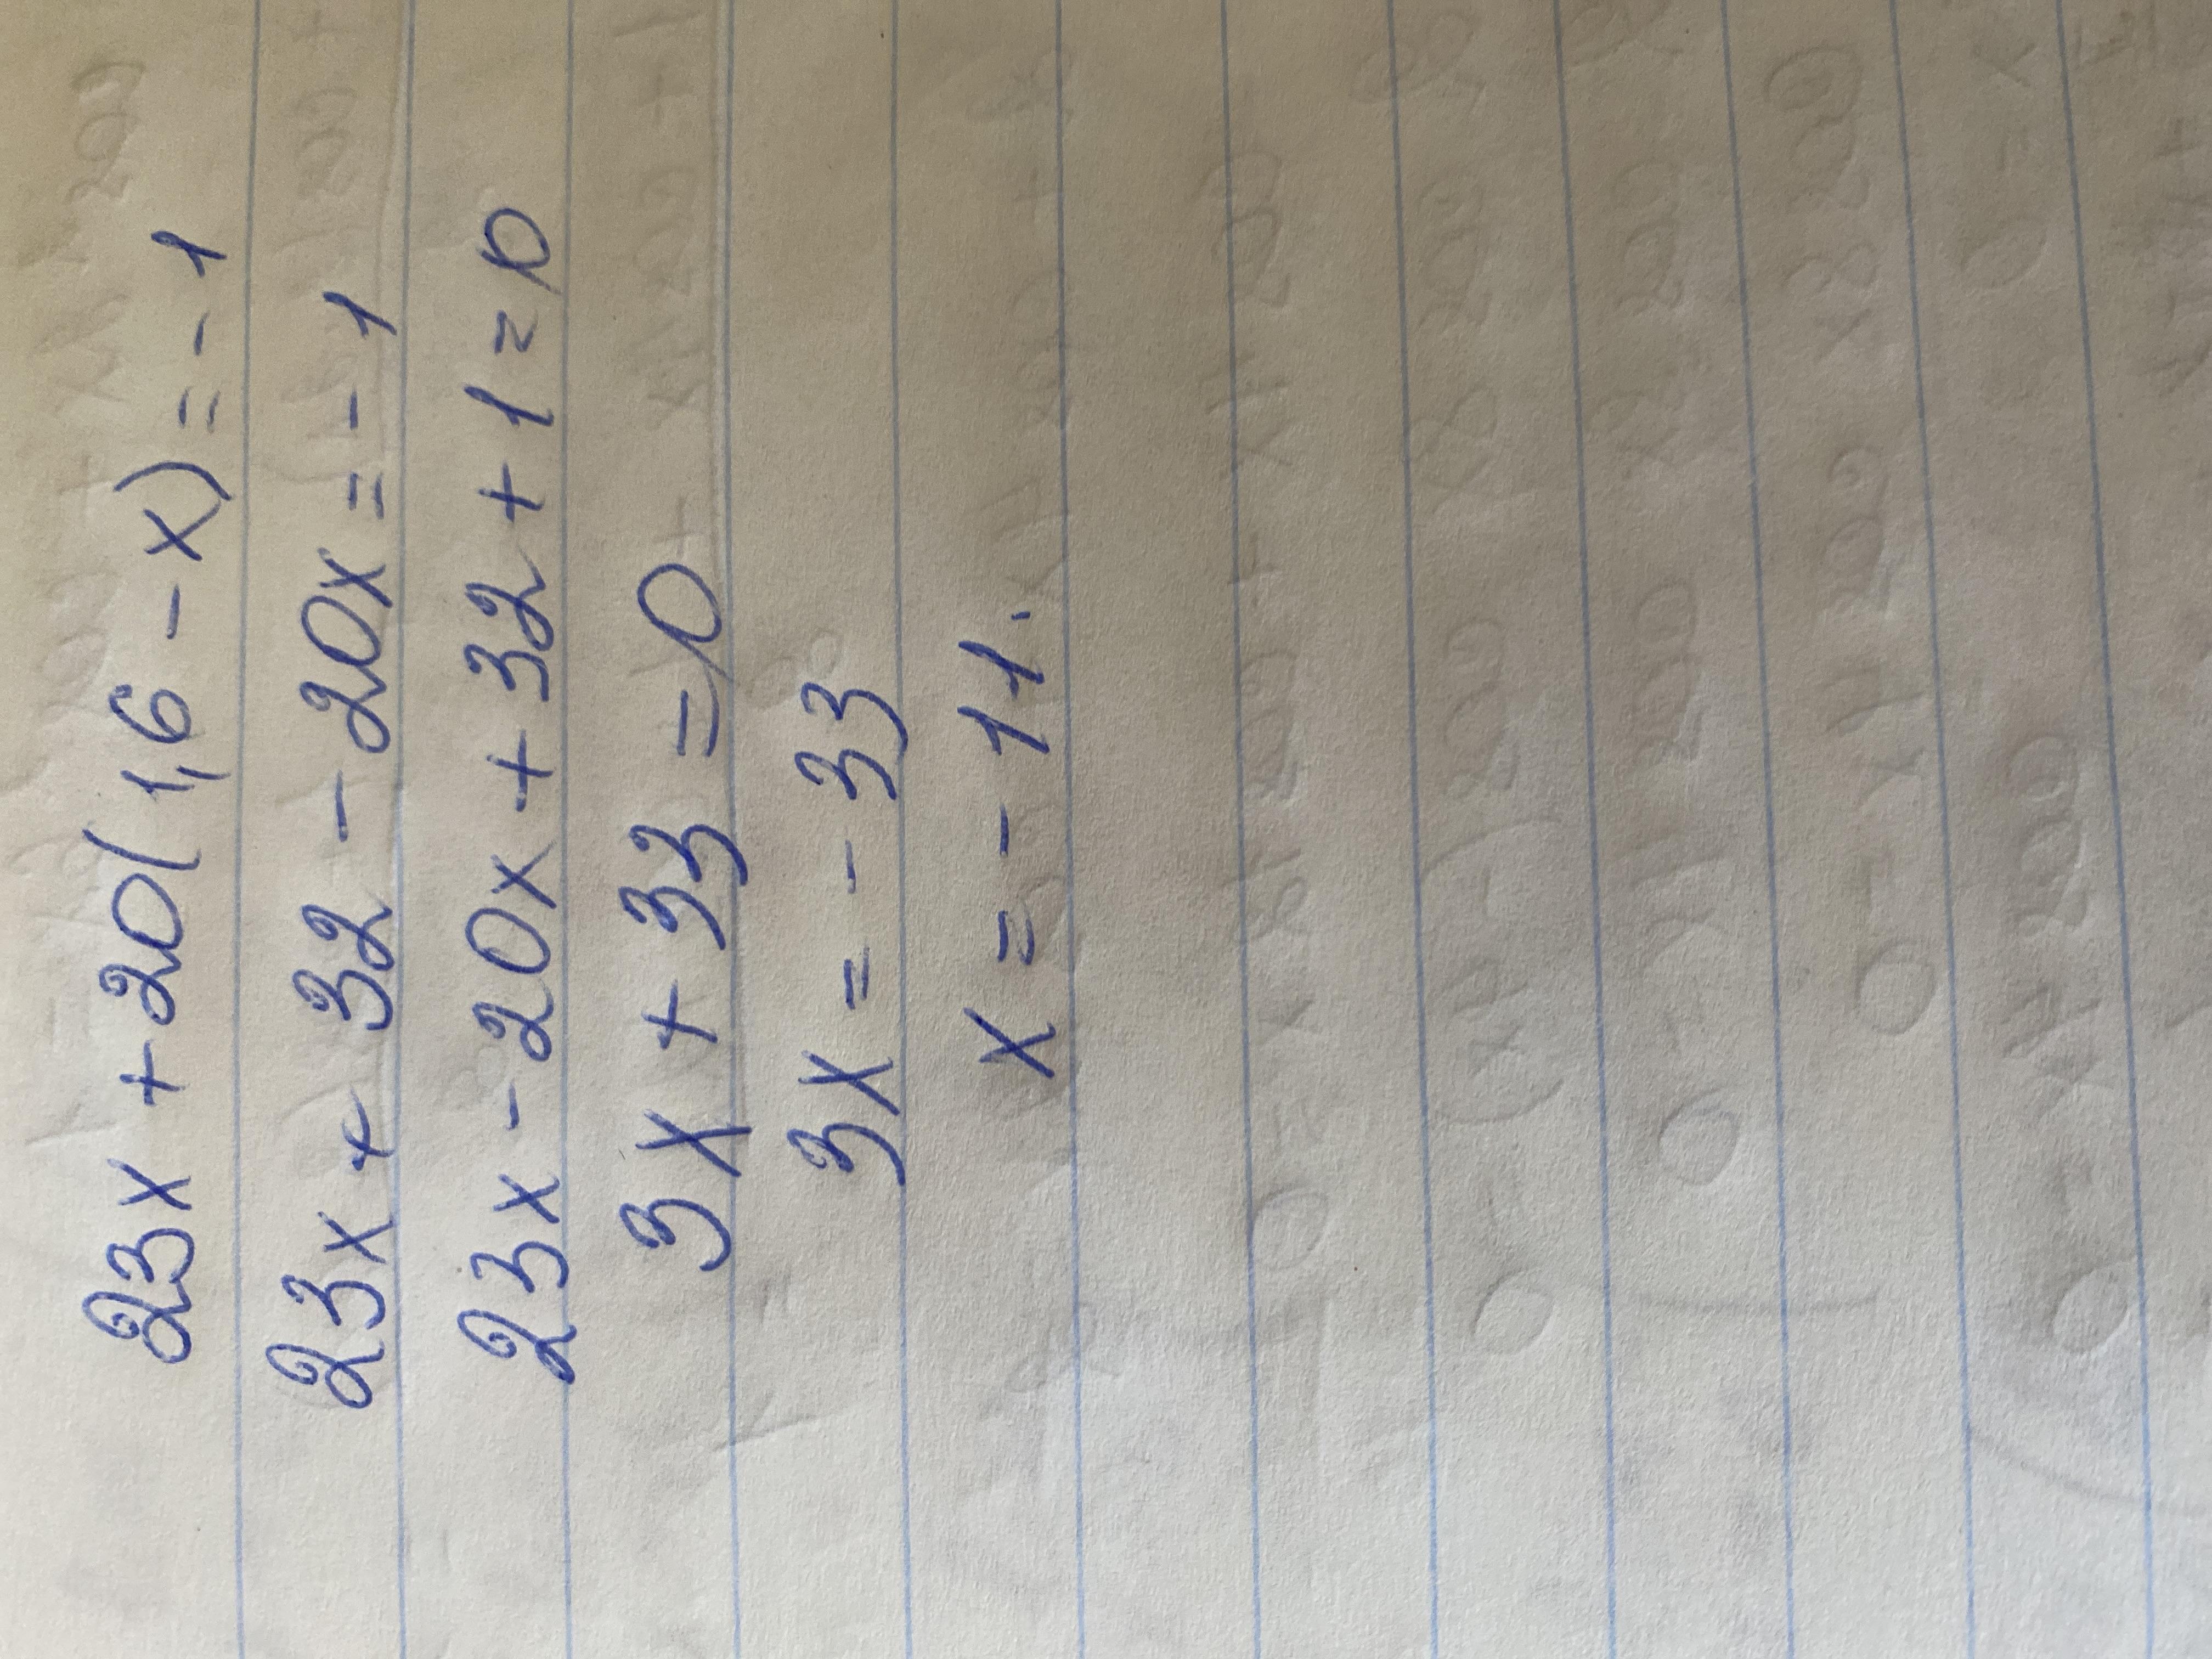 23x + 20(1,6 - x) = - 1
23x + 32 - 20x = - 1
23x - 20x + 32 + 1 = 0
3x + 33 = 0
3x = - 33
x = - 11.